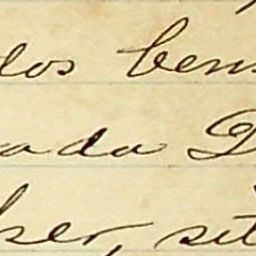 dos bens
ada D
ser, sit